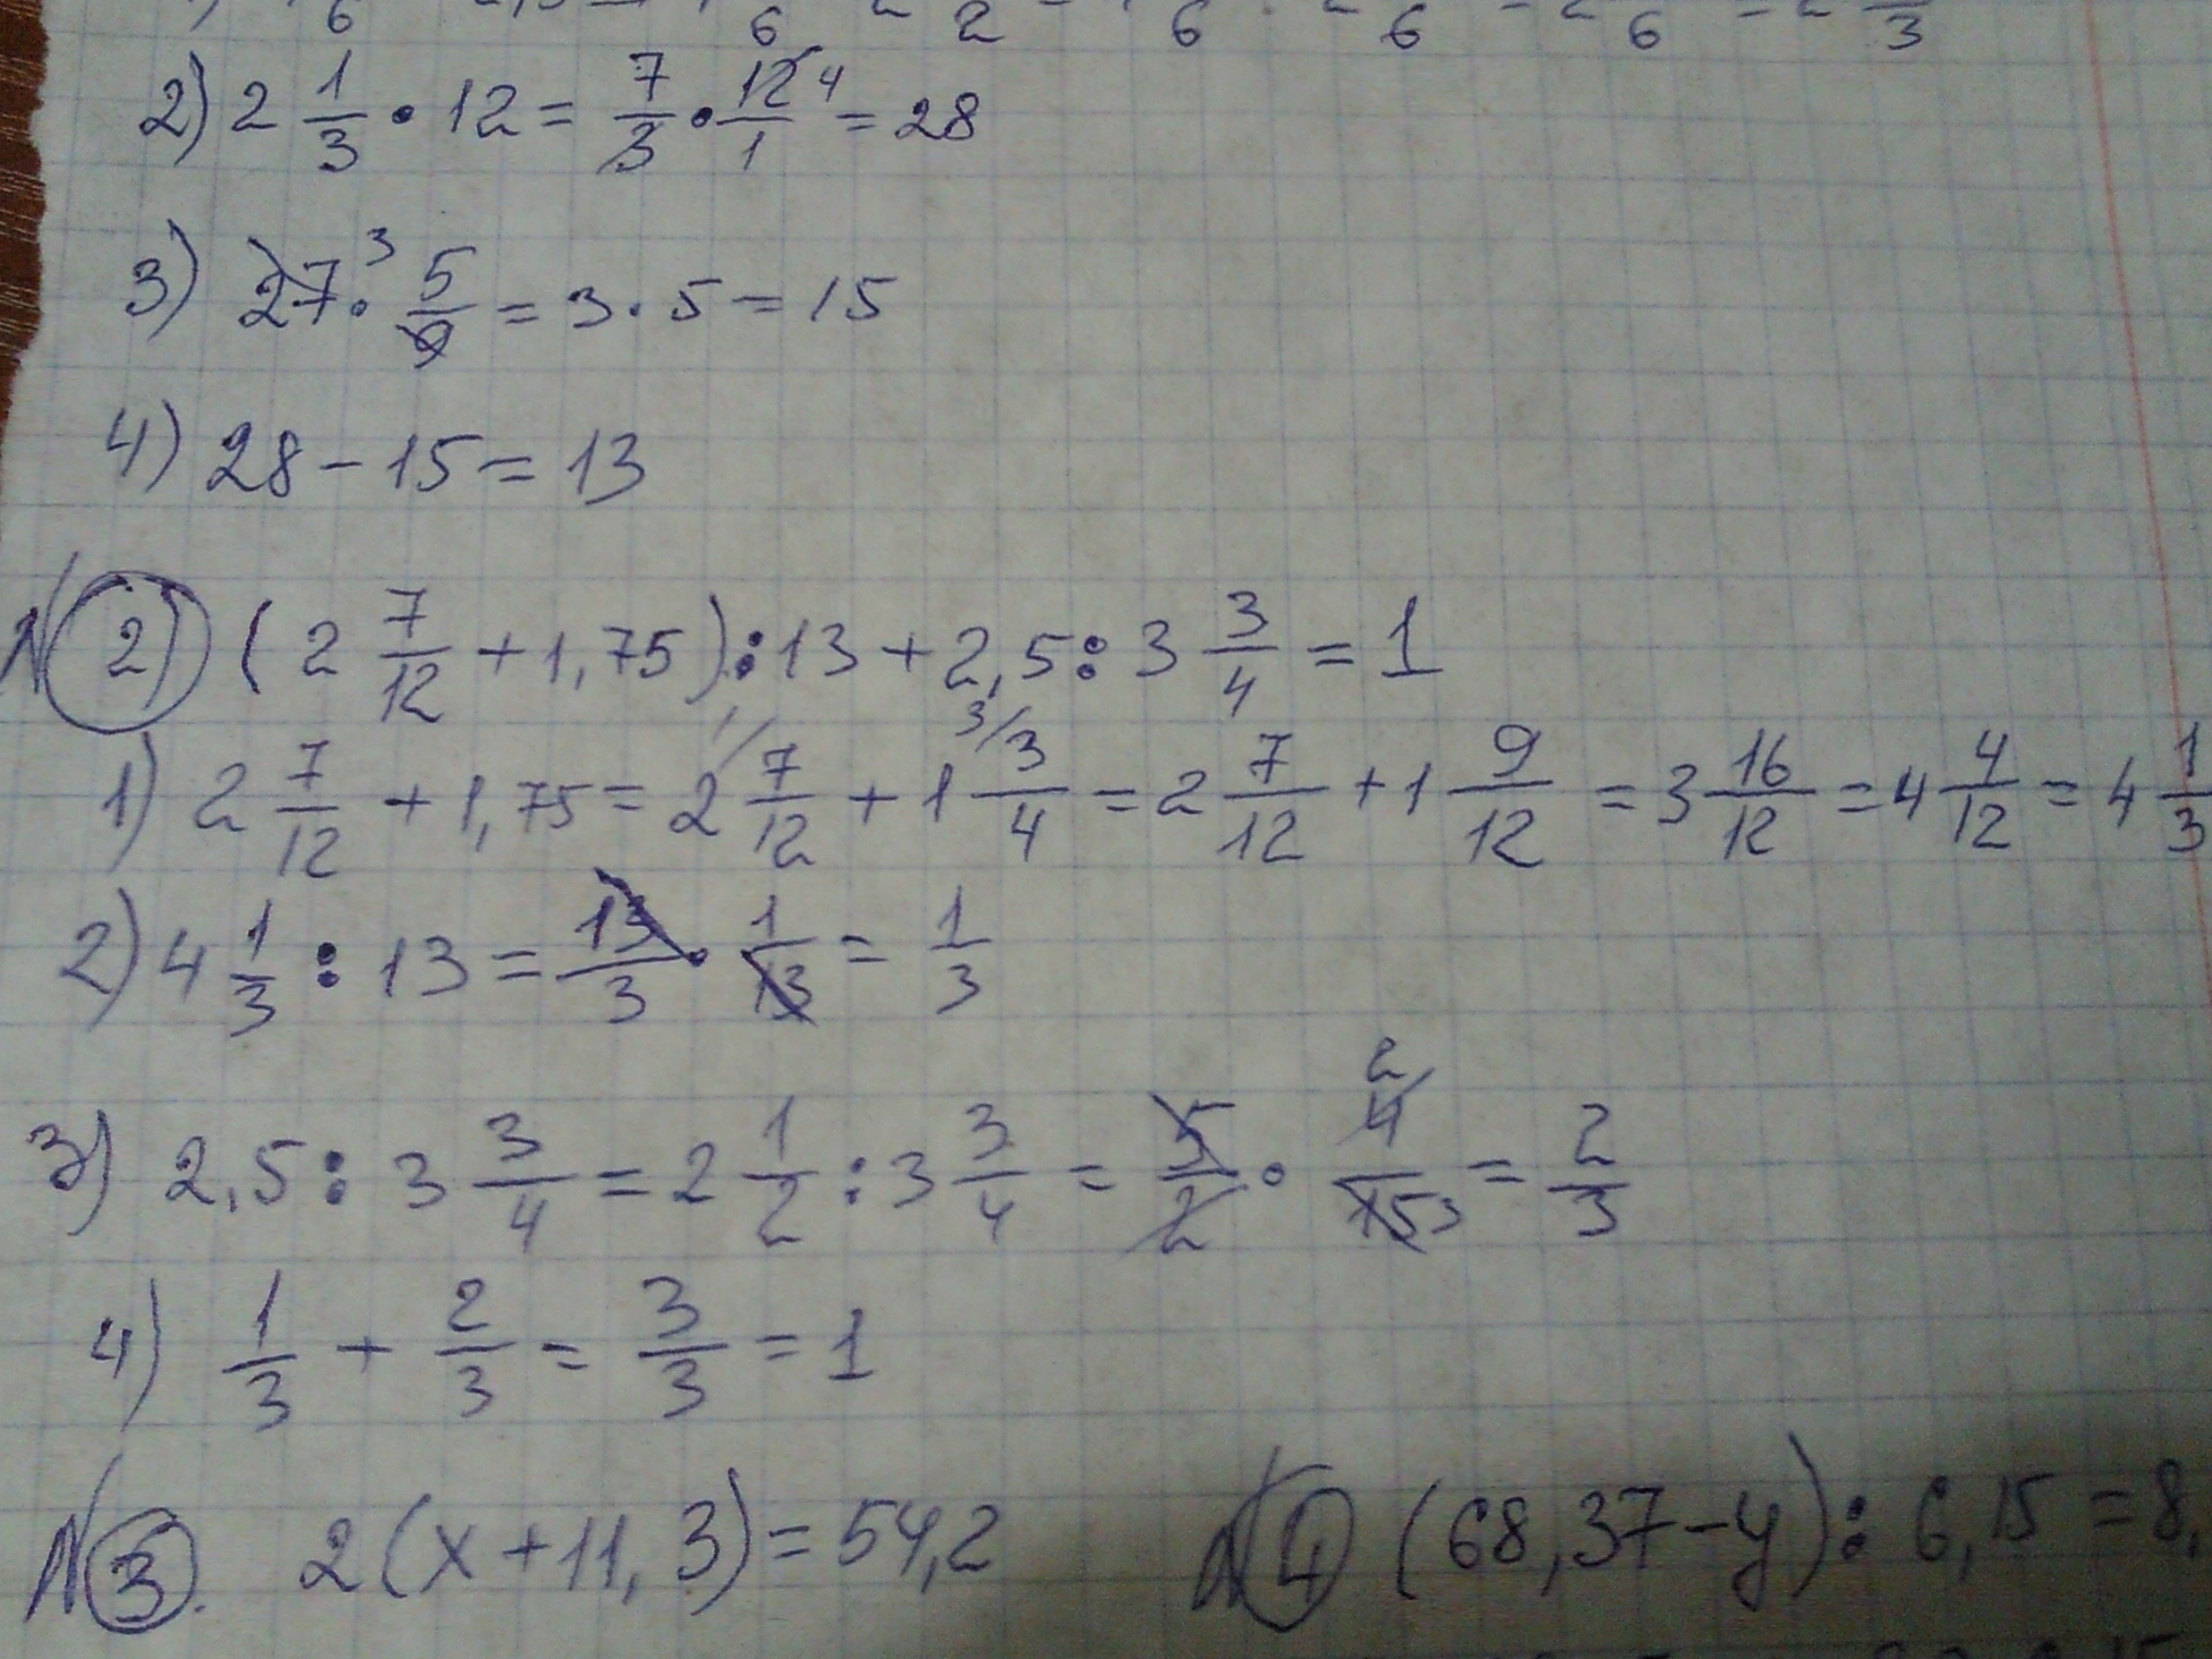 2) 2 1/3 • 12 = 7/3 • 12/1 4 = 28
3) 27 3 • 5/9 = 3 · 5 = 15
4) 28 - 15 = 13
N 2) ( 2 7/12 + 1,75 ) : 13 + 2,5 : 3 3/4 = 1
1) 2 7/12 + 1,75 = 2 7/12 + 1 3/4 = 2 7/12 + 1 9/12 = 3 16/12 = 4 4/12 = 4 1/3
2) 4 1/3 : 13 = 13/3 • 1/13 = 1/3
3) 2,5 : 3 3/4 = 2 1/2 : 3 3/4 = 5/2 • 4 2/15 3 = 2/3
4) 1/3 + 2/3 = 3/3 = 1
N 3. 2(x + 11,3) = 54,2 N 4 (68,37 - y) : 6,15 = 8,